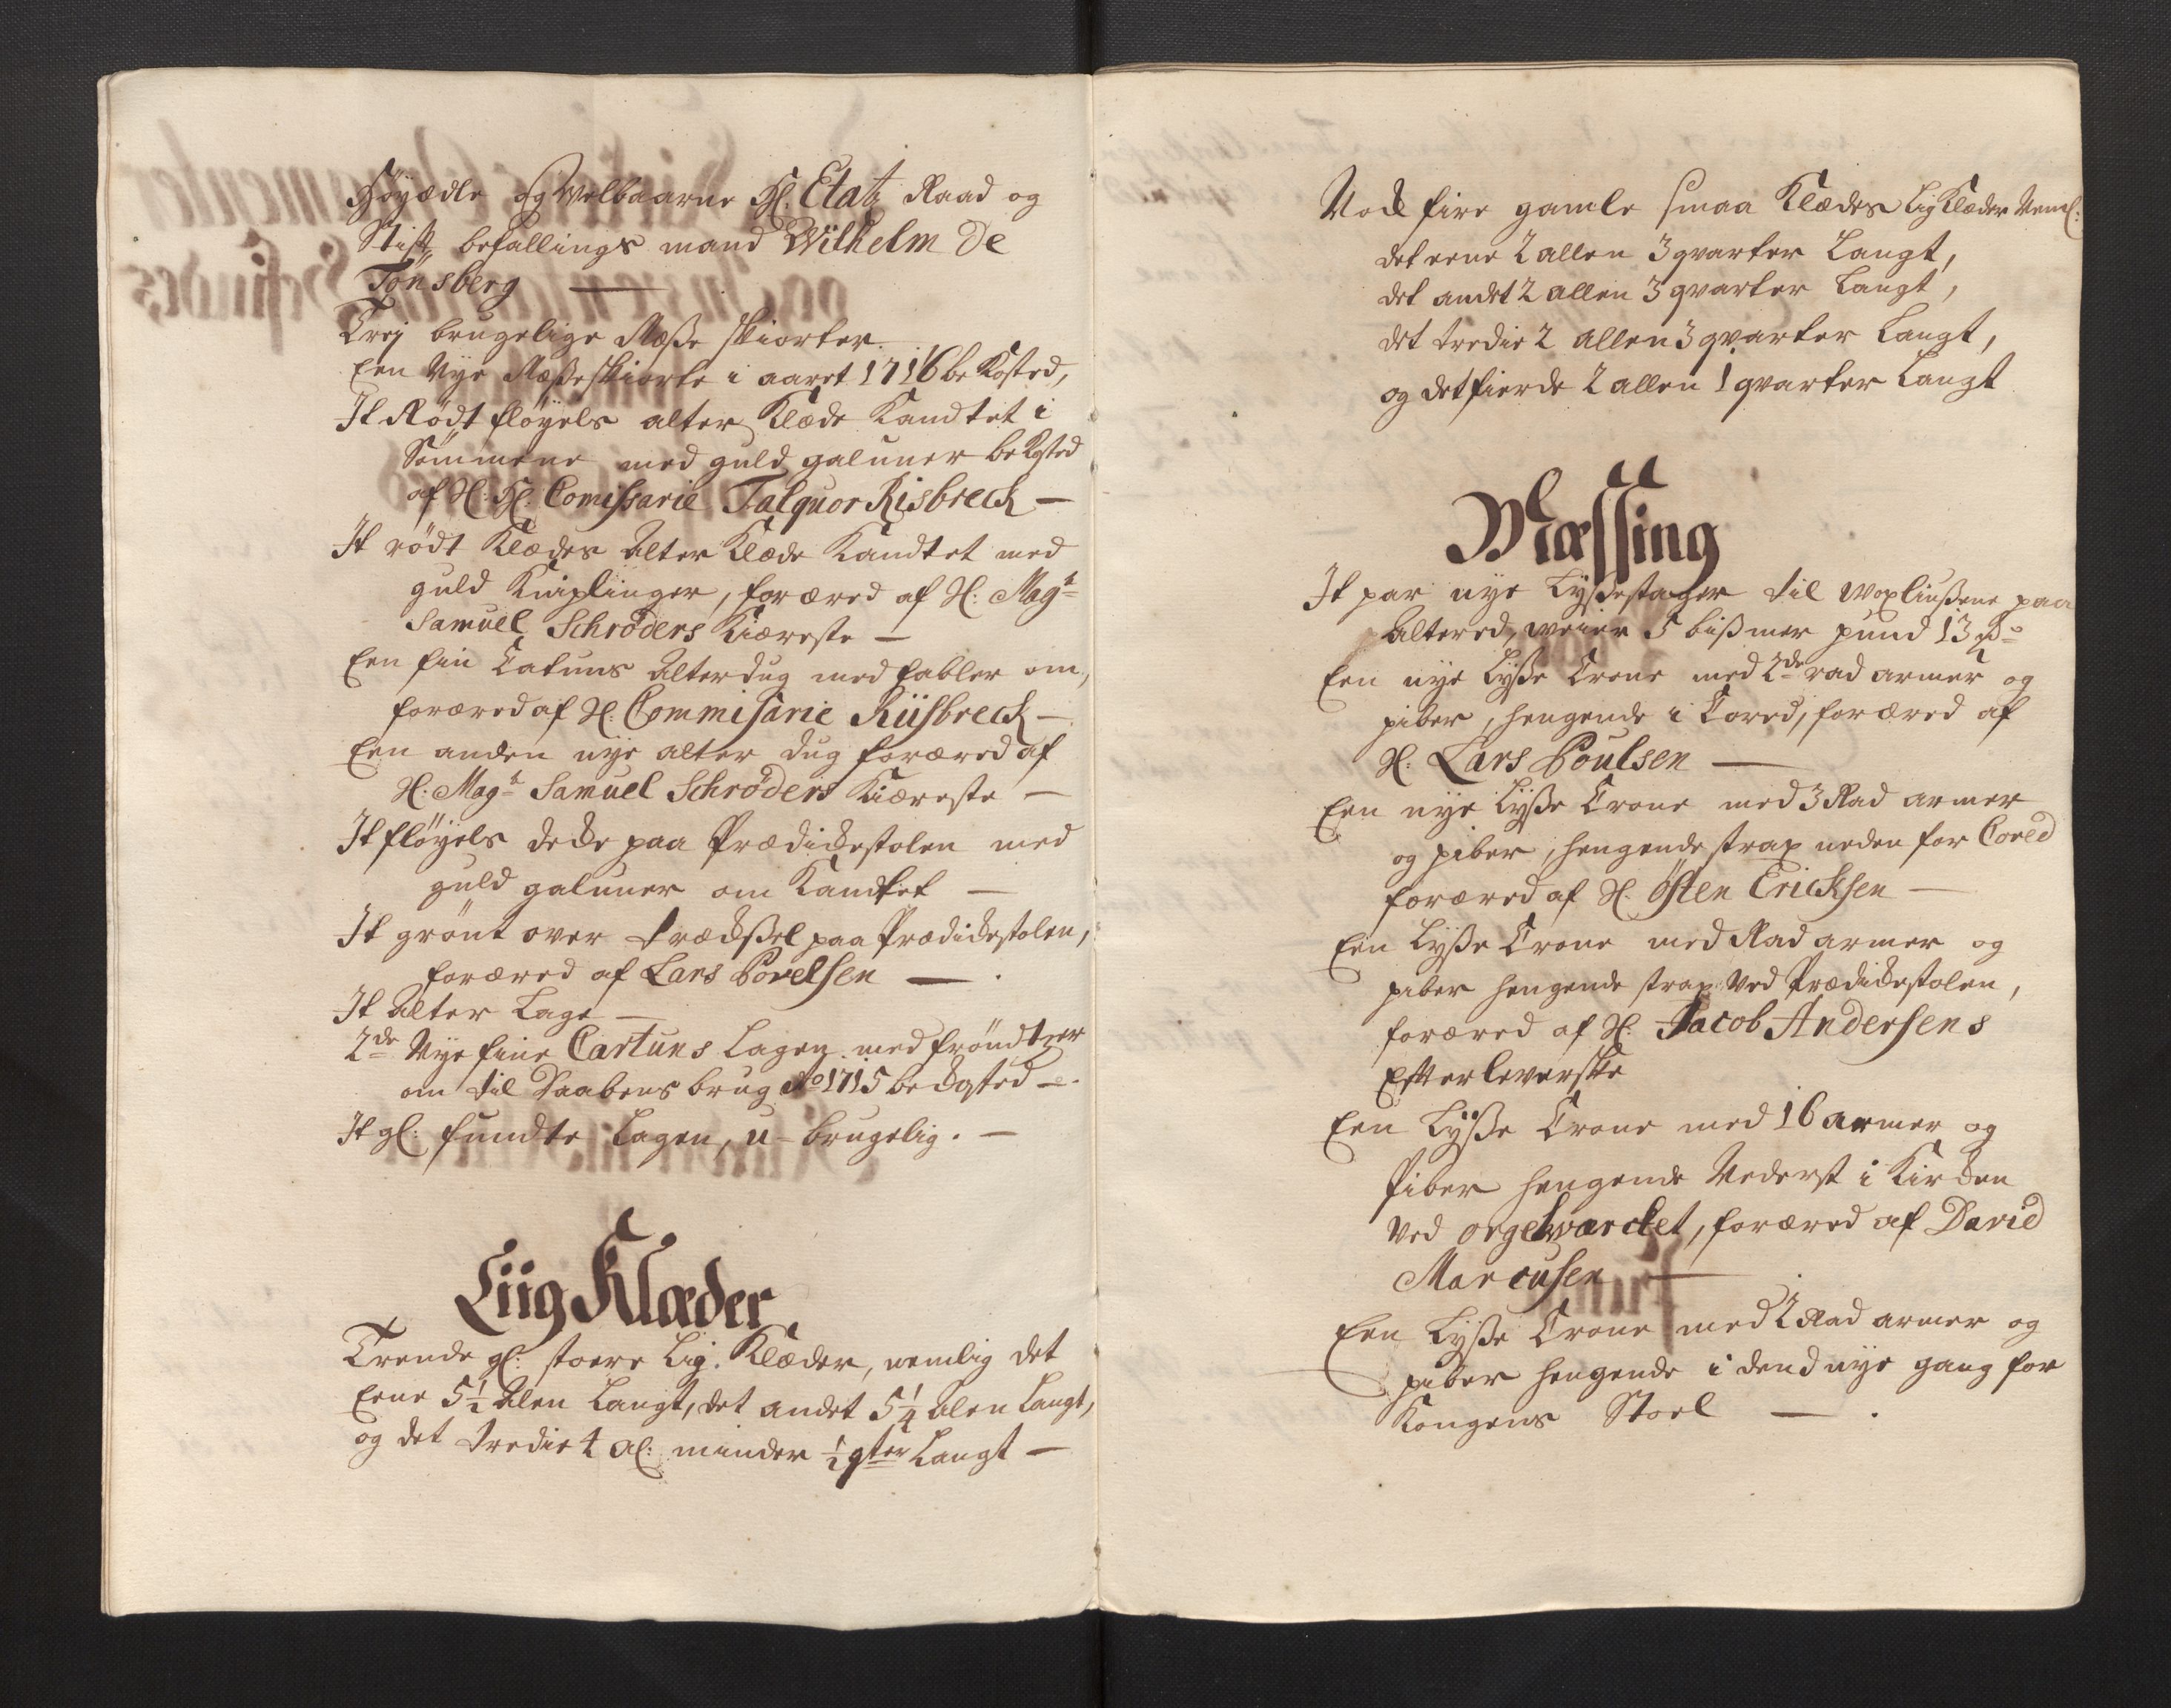 Høyædle og Welbaarne H: Etatz Raad og
Stift befallings mand Wilhelm De
Tönsberg —
Trej brugelige Mæsse skiorter.
Een Nye Mæsseskiorte i aaret 1716 bekosted,
It Rödt fløyels alter Klæde Kandtet i
Sömmene med guld galuner bekosted
af H: H: Comissarie Talquor Risbrech —
It rödt Klædes Alter Klæde Kandtet med
guld Kniplinger, foræred af H: Magr
Samuel Schröders Kiæreste —
Een fin Catuns Alterdug med fabler om,
foræred af H: Commisarie Riisbrech —
Een anden nye alter dug foræred af
H: Magr Samuel Schröders Kiæreste —
It fløyels decke paa Prædickestolen med
guld galuner om Kandtet —
It grönt over trædssel paa Prædickestolen,
foræred af Lars Povelsen —
It Alter Lage —
2de Nye fine Cartuns Lagen med fröndtzer
om til Daabens brug Ao 1715 bekosted —
It gl: fundte Lagen, u-brugelig. —
Liig Klæder
Trende gl: stoere Lig. Klæder, nemlig det
Eene 5½ Alen Langt, det andet 5¼ Alen Langt,
og det tredie 4 Al: minder ½ qter Langt —
Nock fire gamle smaa Klædes Lig Klæder Neml:
det eene 2 allen 3 qvarter Langt,
det andet 2 allen 3 qvarter Langt,
det tredie 2 allen 3 qvarter Langt,
og det fierde 2 allen 1 qvarter Langt
Mæssing
It par nye Lyssestager til woxliussene paa
Altered, weier 5 bissmer pund 13 ℔
Een nye Lysse Crone med 2de rad armer og
piber, hengende i Cored, foræred af
H: Lars Poulsen —
Een nye Lysse Crone med 3 Rad armer
og piber, hengende strax neden for Cored
foræred af H: Østen Ericksen —
Een Lysse Crone med Rad armer og
piber hengende strax Ved Prædickestolen,
foræred af H: Jacob Andersens
Efterleverske
Een Lysse Crone med 16 armer og
Piber hengende Nederst i Kircken
Ved orgelwærcket, foræred af David
Marcusen —
Een Lysse Crone med 2 Rad armer og
piber hengende i dend nye gang for
Kongens Stoel —